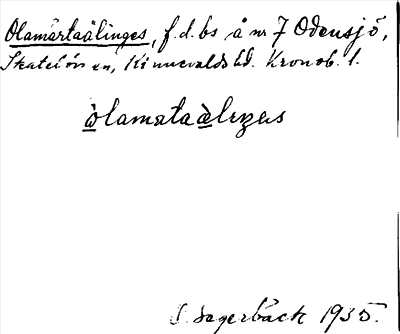 Olamärtaälinges, f.d. bs å nr 7 Odensjö,
Skatelövs sn, Kinnevalds hd. Kronob. l.
òlamataàlıŋəs
S. Lagerbäck 1935.